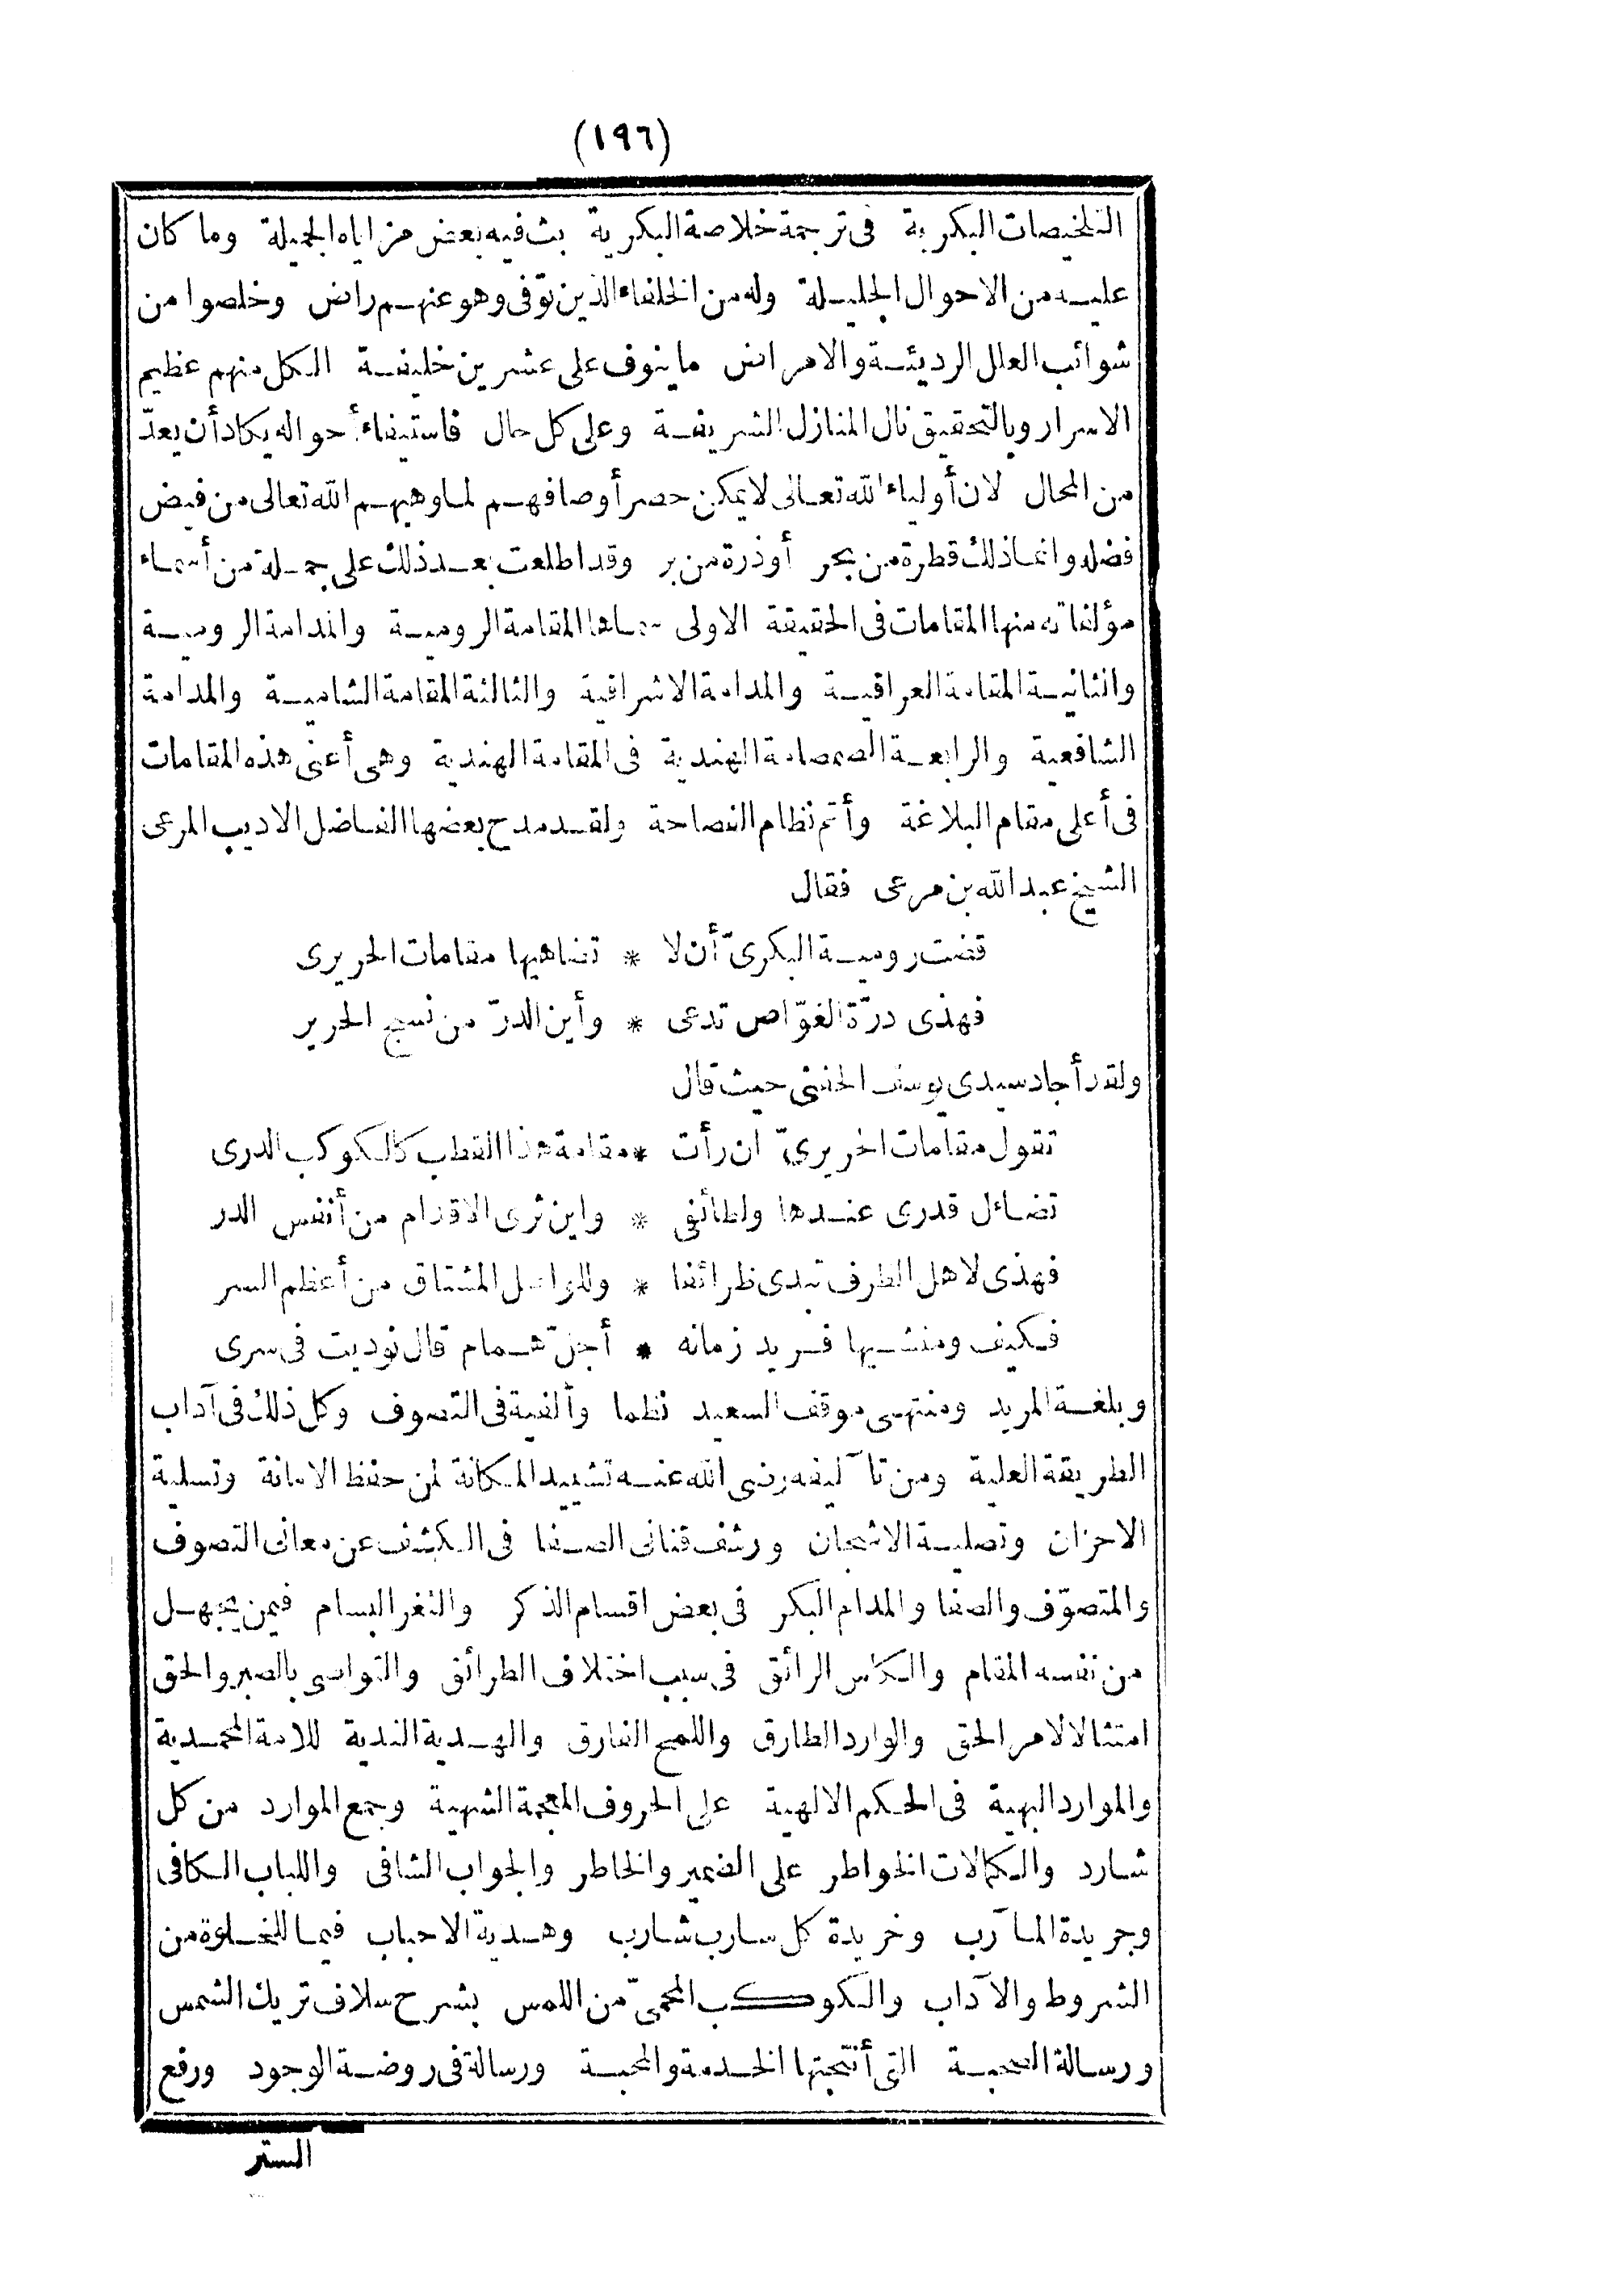 (١٩٦)
التلخيصات البكرية في ترجمة خلاصة البكرية بث فيه بعض مزاياه الجميلة وما كان
عليه من الاحوال الجليلة وله من الخلفاء الذين توفى وهو عنهم راض وخلصوا من
شوائب العلل الرديئة والامراض ما ينوف على عشرين خليفة الكل منهم عظيم
الاسرار وبالتحقيق نال المنازل الشريفة وعلى كل حال فاستيفاء أحواله يكاد أن يعدّ
من المحال لان أولياء الله تعالى لا يمكن حصر أوصافهم لما وهبهم الله تعالى من فيض
فضله وانما ذلك قطرة من بحر أو ذرة من بر وقد اطلعت بعد ذلك على جملة من أسماء
مؤلفاته منها المقامات في الحقيقة الاولى سماها المقامة الرومية والمدامة الرومية
والثانية المقامة العراقية والمدامة الاشراقية والثالثة المقامة الشامية والمدامة
الشافعية والرابعة الصمصامة الهندية في المقامة الهندية وهي أعنى هذه المقامات
في أعلى مقام البلاغة وأتم نظام الفصاحة ولقد مدح بعضها الفاضل الاديب المرعى
الشيخ عبد الله بن مرعى فقال
قضت رومية البكريّ أن لا * تضاهيها مقامات الحريرى
فهذى درّة الغوّاص تدعى * وأين الدرّ من نسج الحرير
ولقد أجاد سيدى يوسف الحفنى حيث قال
تقول مقامات الحريريّ ان رأت * مقامة هذا القطب كالكوكب الدرى
تضاءل قدرى عندها ولطائفى * واين ثرى الاقدام من أنفس الدر
فهذى لاهل الظرف تبدى ظرائفا * وللواصل المشتاق من أعظم السر
فكيف ومنشيها فريد زمانه * أجلّ همام قال نوديت في سرى
وبلغة المريد ومنتهى موقف السعيد نظما وألفية في التصوف وكل ذلك في آداب
الطريقة العلية ومن تآليفه رضى الله عنه تشييد المكانة لمن حفظ الامانة وتسلية
الاحزان وتصلية الاشجان ورشف قنانى الصفا في الكشف عن معانى التصوف
والمتصوّف والصفا والمدام البكر في بعض اقسام الذكر والثغر البسام فيمن يجهل
من نفسه المقام والكاس الرائق في سبب اختلاف الطرائق والتواصى بالصبر والحق
امتثالا لامر الحق والوارد الطارق واللمح الفارق والهدية الندية للامة المحمدية
والموارد البهية في الحكم الالهية على الحروف المعجمة الشهية وجمع الموارد من كل
شارد والكمالات الخواطر على الضمير والخاطر والجواب الشافى واللباب الكافى
وجريدة المآرب وخريدة كل سارب شارب وهدية الاحباب فيما للخلوة من
الشروط والآداب والكوكب المحمىّ من اللمس بشرح سلاف تريك الشمس
ورسالة الصحبة التى أنتجتها الخدمة والمحبة ورسالة في روضة الوجود ورفع
الستر